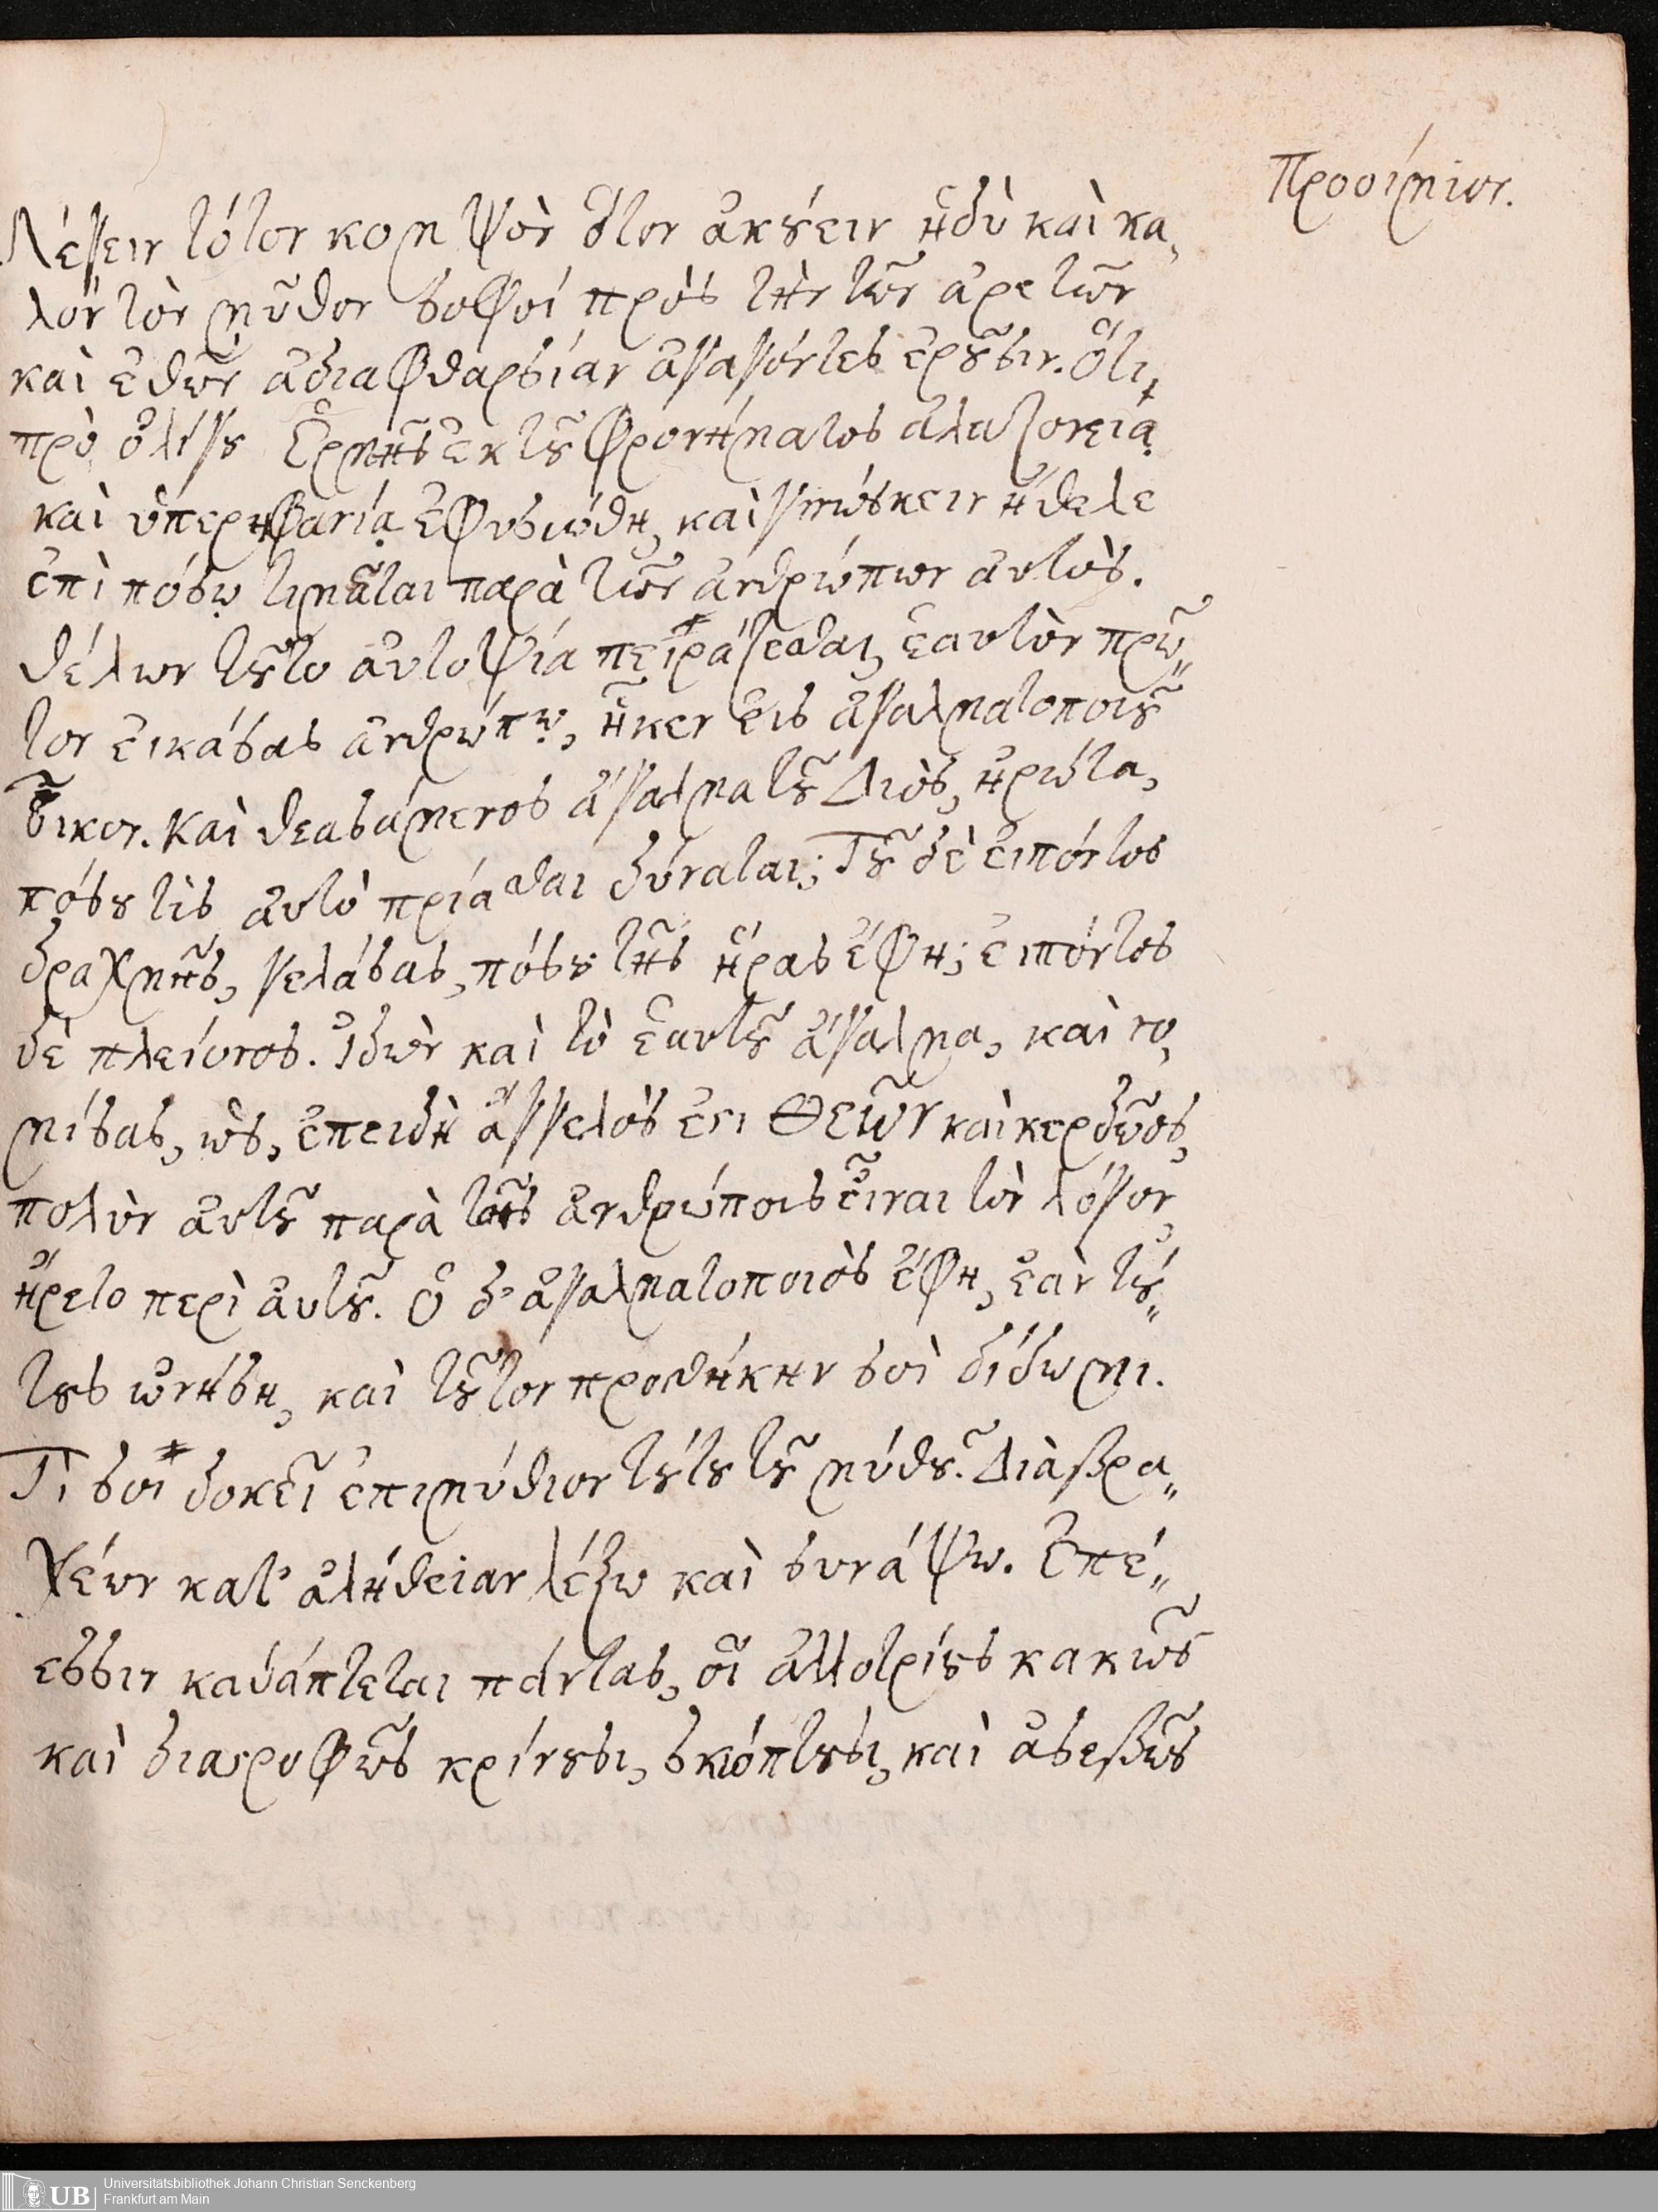 Προοίμιον.
Λέγειν τότον κομψὸν ὅτον ἀκούειν ἡδὺ καὶ κα,
λὸν τὸν μῦθον σοφοί πρὸς τὴν τῶν ἀρετῶν
καὶ ἐθῶν ἀδιαφθαρσίαν ἀγαγόντες ἐροῦσιν. Ὅτι,
πρὸ ὀλίγου Ἑρμῆς ἐκ τοῦ φρονήματος ἀλαζονείᾳ
καὶ ὑπερηφανίᾳ ἐφυσιώθη, καὶ γινώσκειν ἤθελε
ἐπὶ πόσῳ τιμᾶται παρὰ τῶν ἀνθρώπων αὐτὸς.
θέλων τοῦτο αὐτοψία πειράζεσθαι, ἑαυτὸν πρῶ„
τον εἰκάσας ἀνθρώπῳ, ἧκεν εἰς ἀγαλματοποιοῦ
οἶκον. Καὶ θεασάμενος ἄγαλμα τοῦ Διὸς, ἠρώτα,
πόσου τὶς αὐτὸ πρίασθαι δύναται; Τοῦ δὲ εἰπόντος
δραχμῆς, γελάσας, πόσου τῆς ἥρας ἔφη; εἰπόντος
δὲ πλείονος. Ἰδὼν καὶ τὸ ἑαυτοῦ ἄγαλμα, καὶ νο,
μίσας, ὡς, ἐπειδὴ ἄγγελὸς ἐστι Θεῶν καὶ κερδῶος,
πολὺν αὐτοῦ παρὰ τοῖς ἀνθρώποις εἶναι τὸν λόγον,
ἤρετο περὶ αὐτοῦ. Ὁ δ' ἀγαλματοποιὸς ἔφη, ἐὰν τού„
τους ὠνήσῃ, καὶ τοῦτον προσθήκην σοὶ δίδωμι.
Τὶ σοι δοκεῖ ἐπιμύθιον τούτου τοῦ μύθου. Διὰ βρα„
χέων κατ' ἀλήθειαν λέξω καὶ συνάψω. Ἐπέ„
εσσιν καθάπτεται πάντας, οἳ ἀλλοτρίους κακῶς
καὶ διαστροφῶς κρίνουσι, σκώπτουσι, καὶ ἀσεβῶς
UB Universitätsbibliothek Johann Christian Senckenberg
Frankfurt am Main